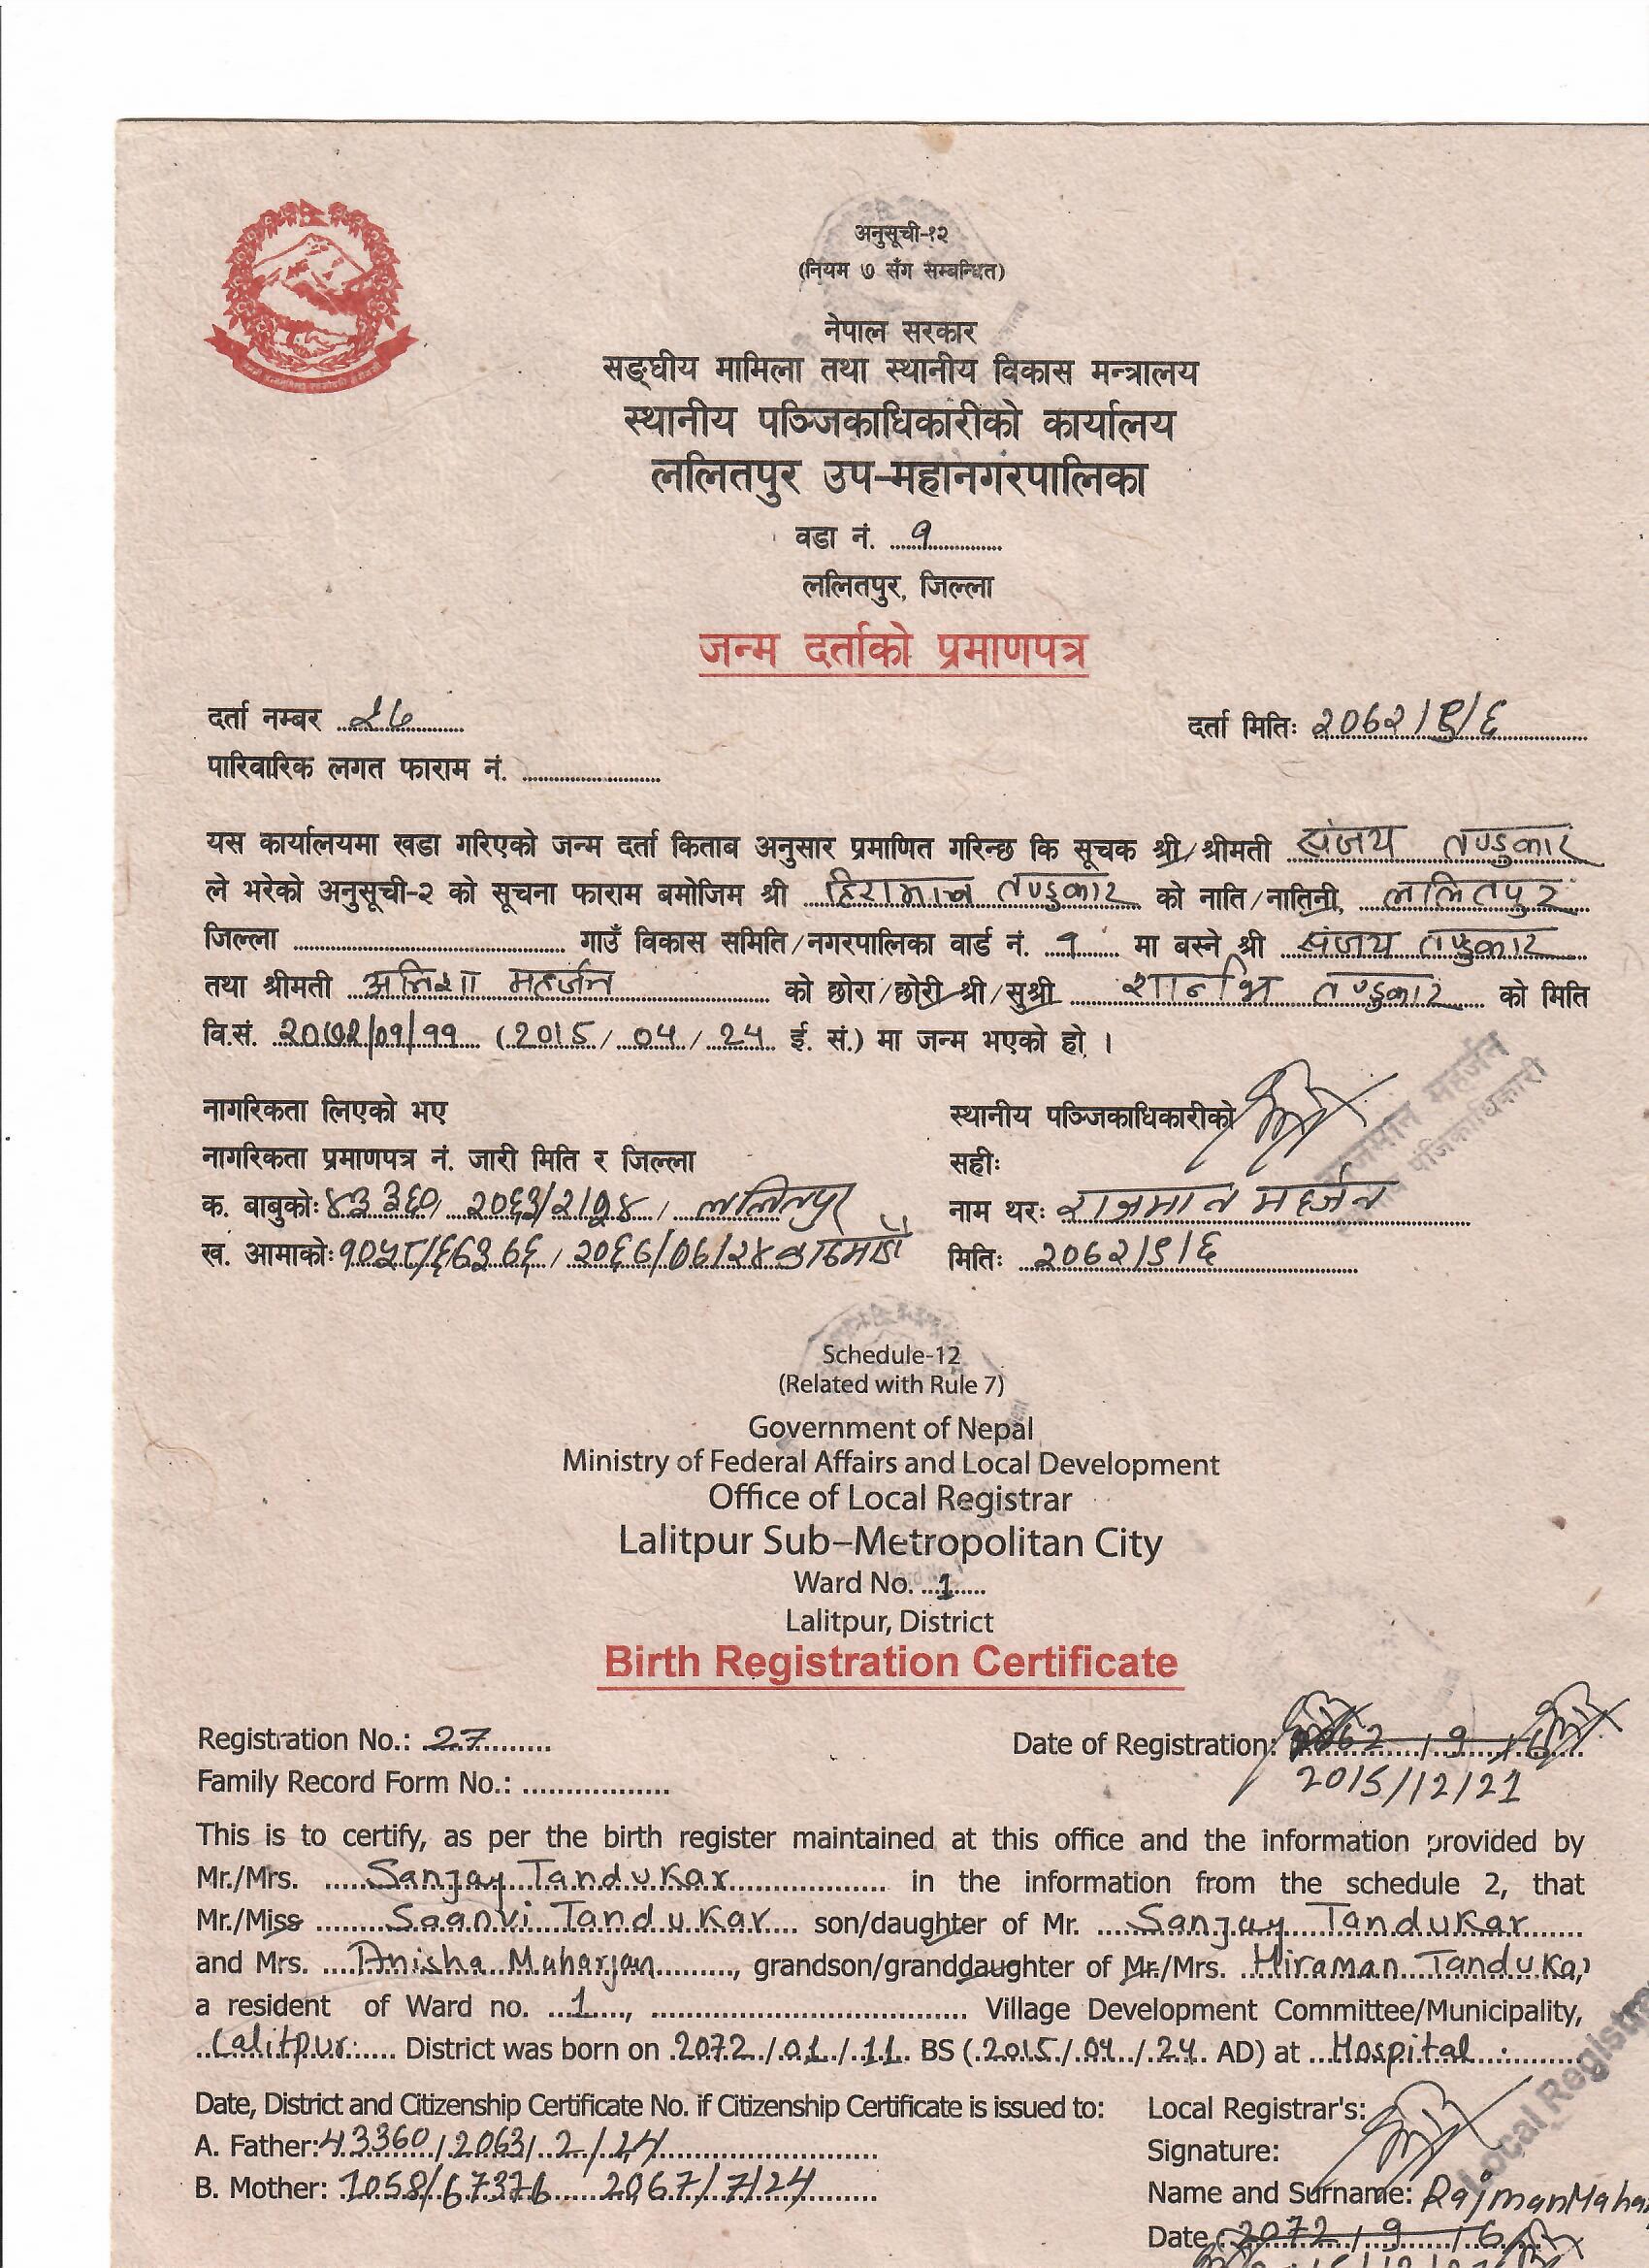 अनुसूची-१२
(नियम ७ सँग सम्बन्धित)
नेपाल सरकार
सङ्घीय मामिला तथा स्थानीय विकास मन्त्रालय
स्थानीय पञ्जिकाधिकारीको कार्यालय
ललितपुर उप-महानगरपालिका
वडा नं. १
ललितपुर, जिल्ला
जन्म दर्ताको प्रमाणपत्र
दर्ता नम्बर २७ दर्ता मितिः २०७२/९/६
पारिवारिक लगत फाराम नं.
यस कार्यालयमा खडा गरिएको जन्म दर्ता किताब अनुसार प्रमाणित गरिन्छ कि सूचक श्री/श्रीमती संजय तण्डुकार
ले भरेको अनुसूची-२ को सूचना फाराम बमोजिम श्री हिरामान तण्डुकार को नाति/नातिनी, ललितपुर
जिल्ला गाउँ विकास समिति/नगरपालिका वार्ड नं. १ मा बस्ने श्री संजय तण्डुकार
तथा श्रीमती अनिशा महर्जन को छोरा/छोरी श्री/सुश्री तण्डुकार को मिति
वि.सं. २०७२/०१/११ (2015/04/24 ई. सं.) मा जन्म भएको हो ।
नागरिकता लिएको भए स्थानीय पञ्जिकाधिकारीको
नागरिकता प्रमाणपत्र नं. जारी मिति र जिल्ला सहीः
क. बाबुकोः ४३३६०, २०६३/२/२४, ललितपुर नाम थरः राजमान महर्जन
ख. आमाकोः १०५८/६७३७६, २०६७/०७/२४ काठमाडौं मितिः २०७२/९/६
राजमान महर्जन
स्थानीय पंजिकाधिकारी
Schedule-12
(Related with Rule 7)
Government of Nepal
Ministry of Federal Affairs and Local Development
Office of Local Registrar
Lalitpur Sub-Metropolitan City
Ward No. 1
Lalitpur, District
Birth Registration Certificate
Registration No.: 27 Date of Registration: 2072/9/6
Family Record Form No.: 2015/12/21
This is to certify, as per the birth register maintained at this office and the information provided by
Mr./Mrs. Sanjay Tandukar in the information from the schedule 2, that
Mr./Miss Saanvi Tandukar son/daughter of Mr. Sanjay Tandukar
and Mrs. Anisha Maharjan, grandson/granddaughter of Mr./Mrs. Hiraman Tanduka
a resident of Ward no. 1, Village Development Committee/Municipality,
Lalitpur District was born on 2072/01/11 BS (2015/04/24 AD) at Hospital
Date, District and Citizenship Certificate No. if Citizenship Certificate is issued to: Local Registrar's:
A. Father: 43360/2063/2/24 Signature:
B. Mother: 1058/67376 2067/7/24 Name and Surname: Rajman Maha
Date: 2072/9/6
Local Registr